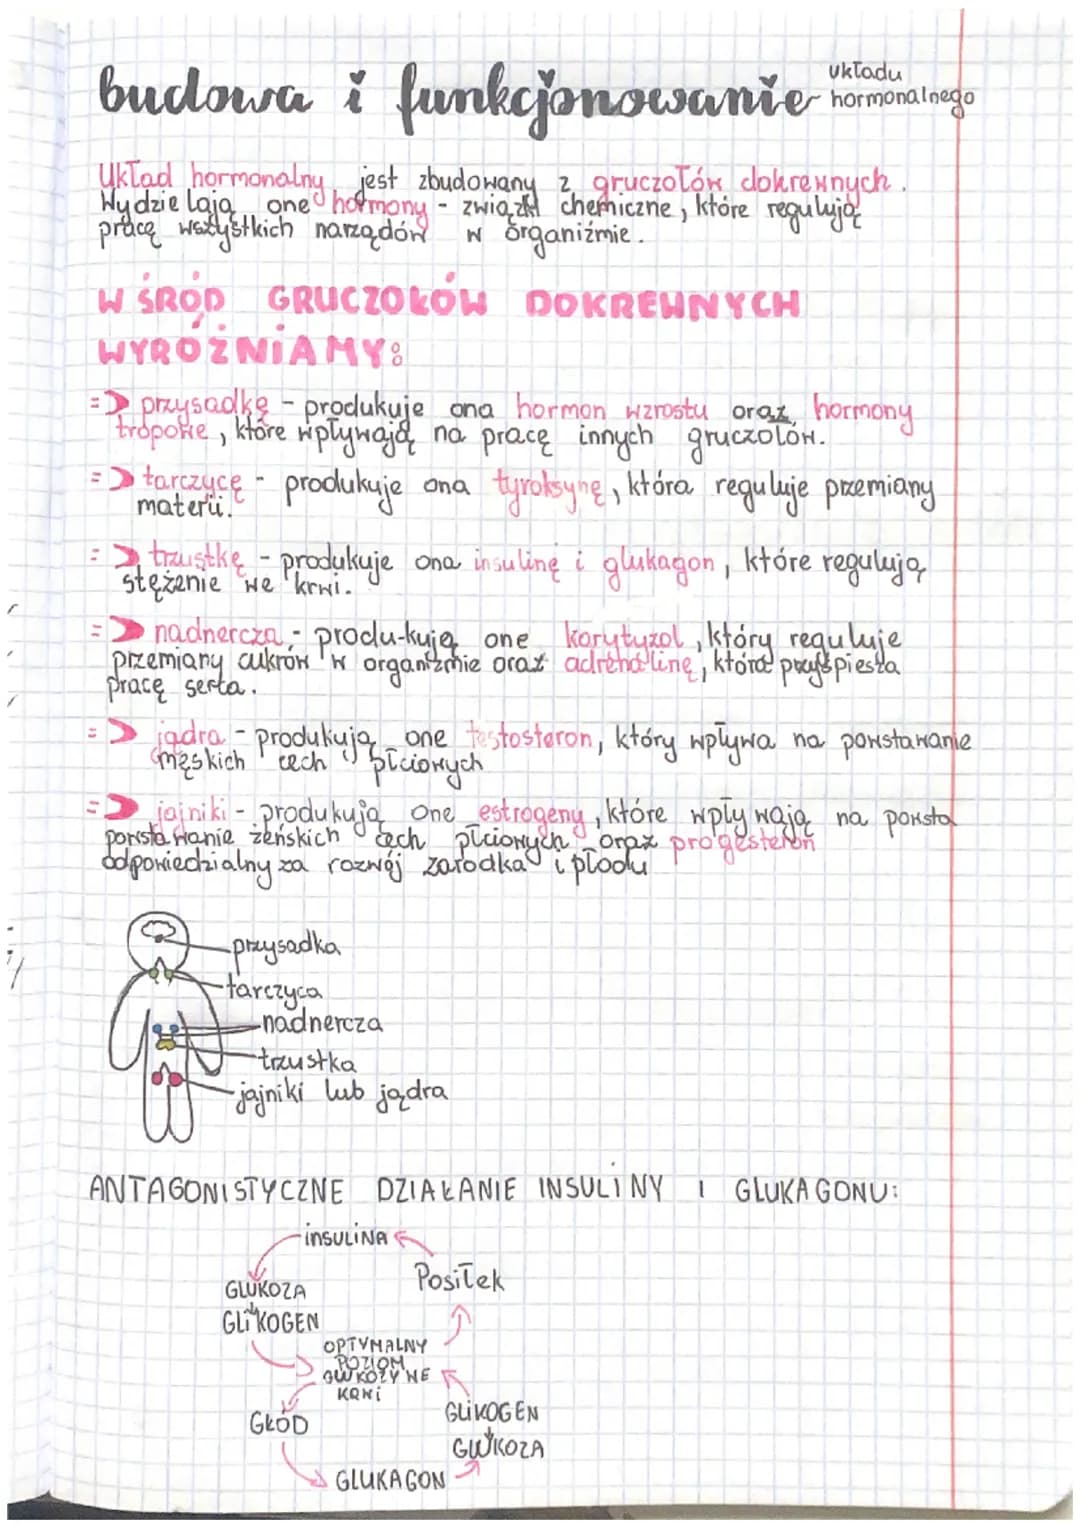 budowa i funkcjonowanie układu hormonalnego
Układ hormonalny jest zbudowany z gruczołów dokrewnych.
Wydzielają one hormony - związki chemiczne, które regulują
pracę wszystkich narządów w organiźmie.
WŚRÓD GRUCZOŁÓW DOKREWNYCH
WYRÓŻNIAMY:
=> przysadkę - produkuje ona hormon wzrostu oraz hormony
tropowe, które wpływają na pracę innych gruczołów.
=> tarczycę - produkuje ona tyroksynę, która reguluje przemiany
materii.
=> trzustkę - produkuje ona insulinę i glukagon, które regulują
stężenie we krwi.
=> nadnercza - produ-kują one korytyzol, który reguluje
przemiany cukrów w organizmie oraz adrenalinę, która przyśpiesza
pracę serca.
=> jądra - produkują one testosteron, który wpływa na powstawanie
męskich cech płciowych
=> jajniki - produkują one estrogeny, które wpływają na powsta
powstawanie żeńskich cech płciowych oraz progesteron
odpowiedzialny za rozwój zarodka i płodu
przysadka
tarczyca
nadnercza
trzustka
jajniki lub jądra
ANTAGONISTYCZNE DZIAŁANIE INSULINY I GLUKAGONU:
INSULINA
Posiłek
GLUKOZA
GLIKOGEN
OPTYMALNY
POZIOM
GLUKOZY WE
KRWI
GŁÓD
GLIKOGEN
GLUKOZA
GLUKAGON